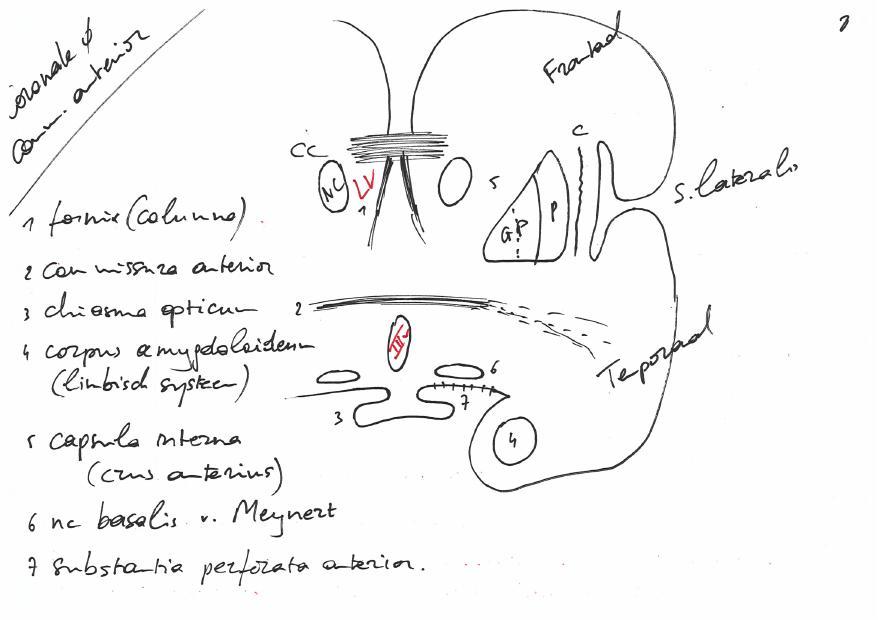 coronale φ
comm. anterior
Frontaal
CC
NC
LV
1
5
C
G P
P
S. lateralis
1 fornix (columna)
2 commissura anterior
3 chiasma opticum
4 corpus amygdaloideum
(limbisch systeem)
5 capsula interna
(crus anterius)
6 nc basalis v. Meynert
7 substantia perforata anterior.
2
III
Temporaal
6
7
3
4